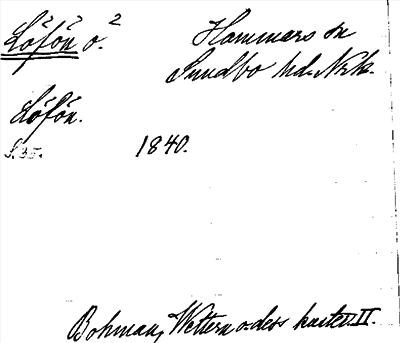 Löfön o.²
Hammars sn
Sundbo hd. Nrk.
Löfön.
S. 35.
1840.
Bohman, Wettern o. dess kuster. II.